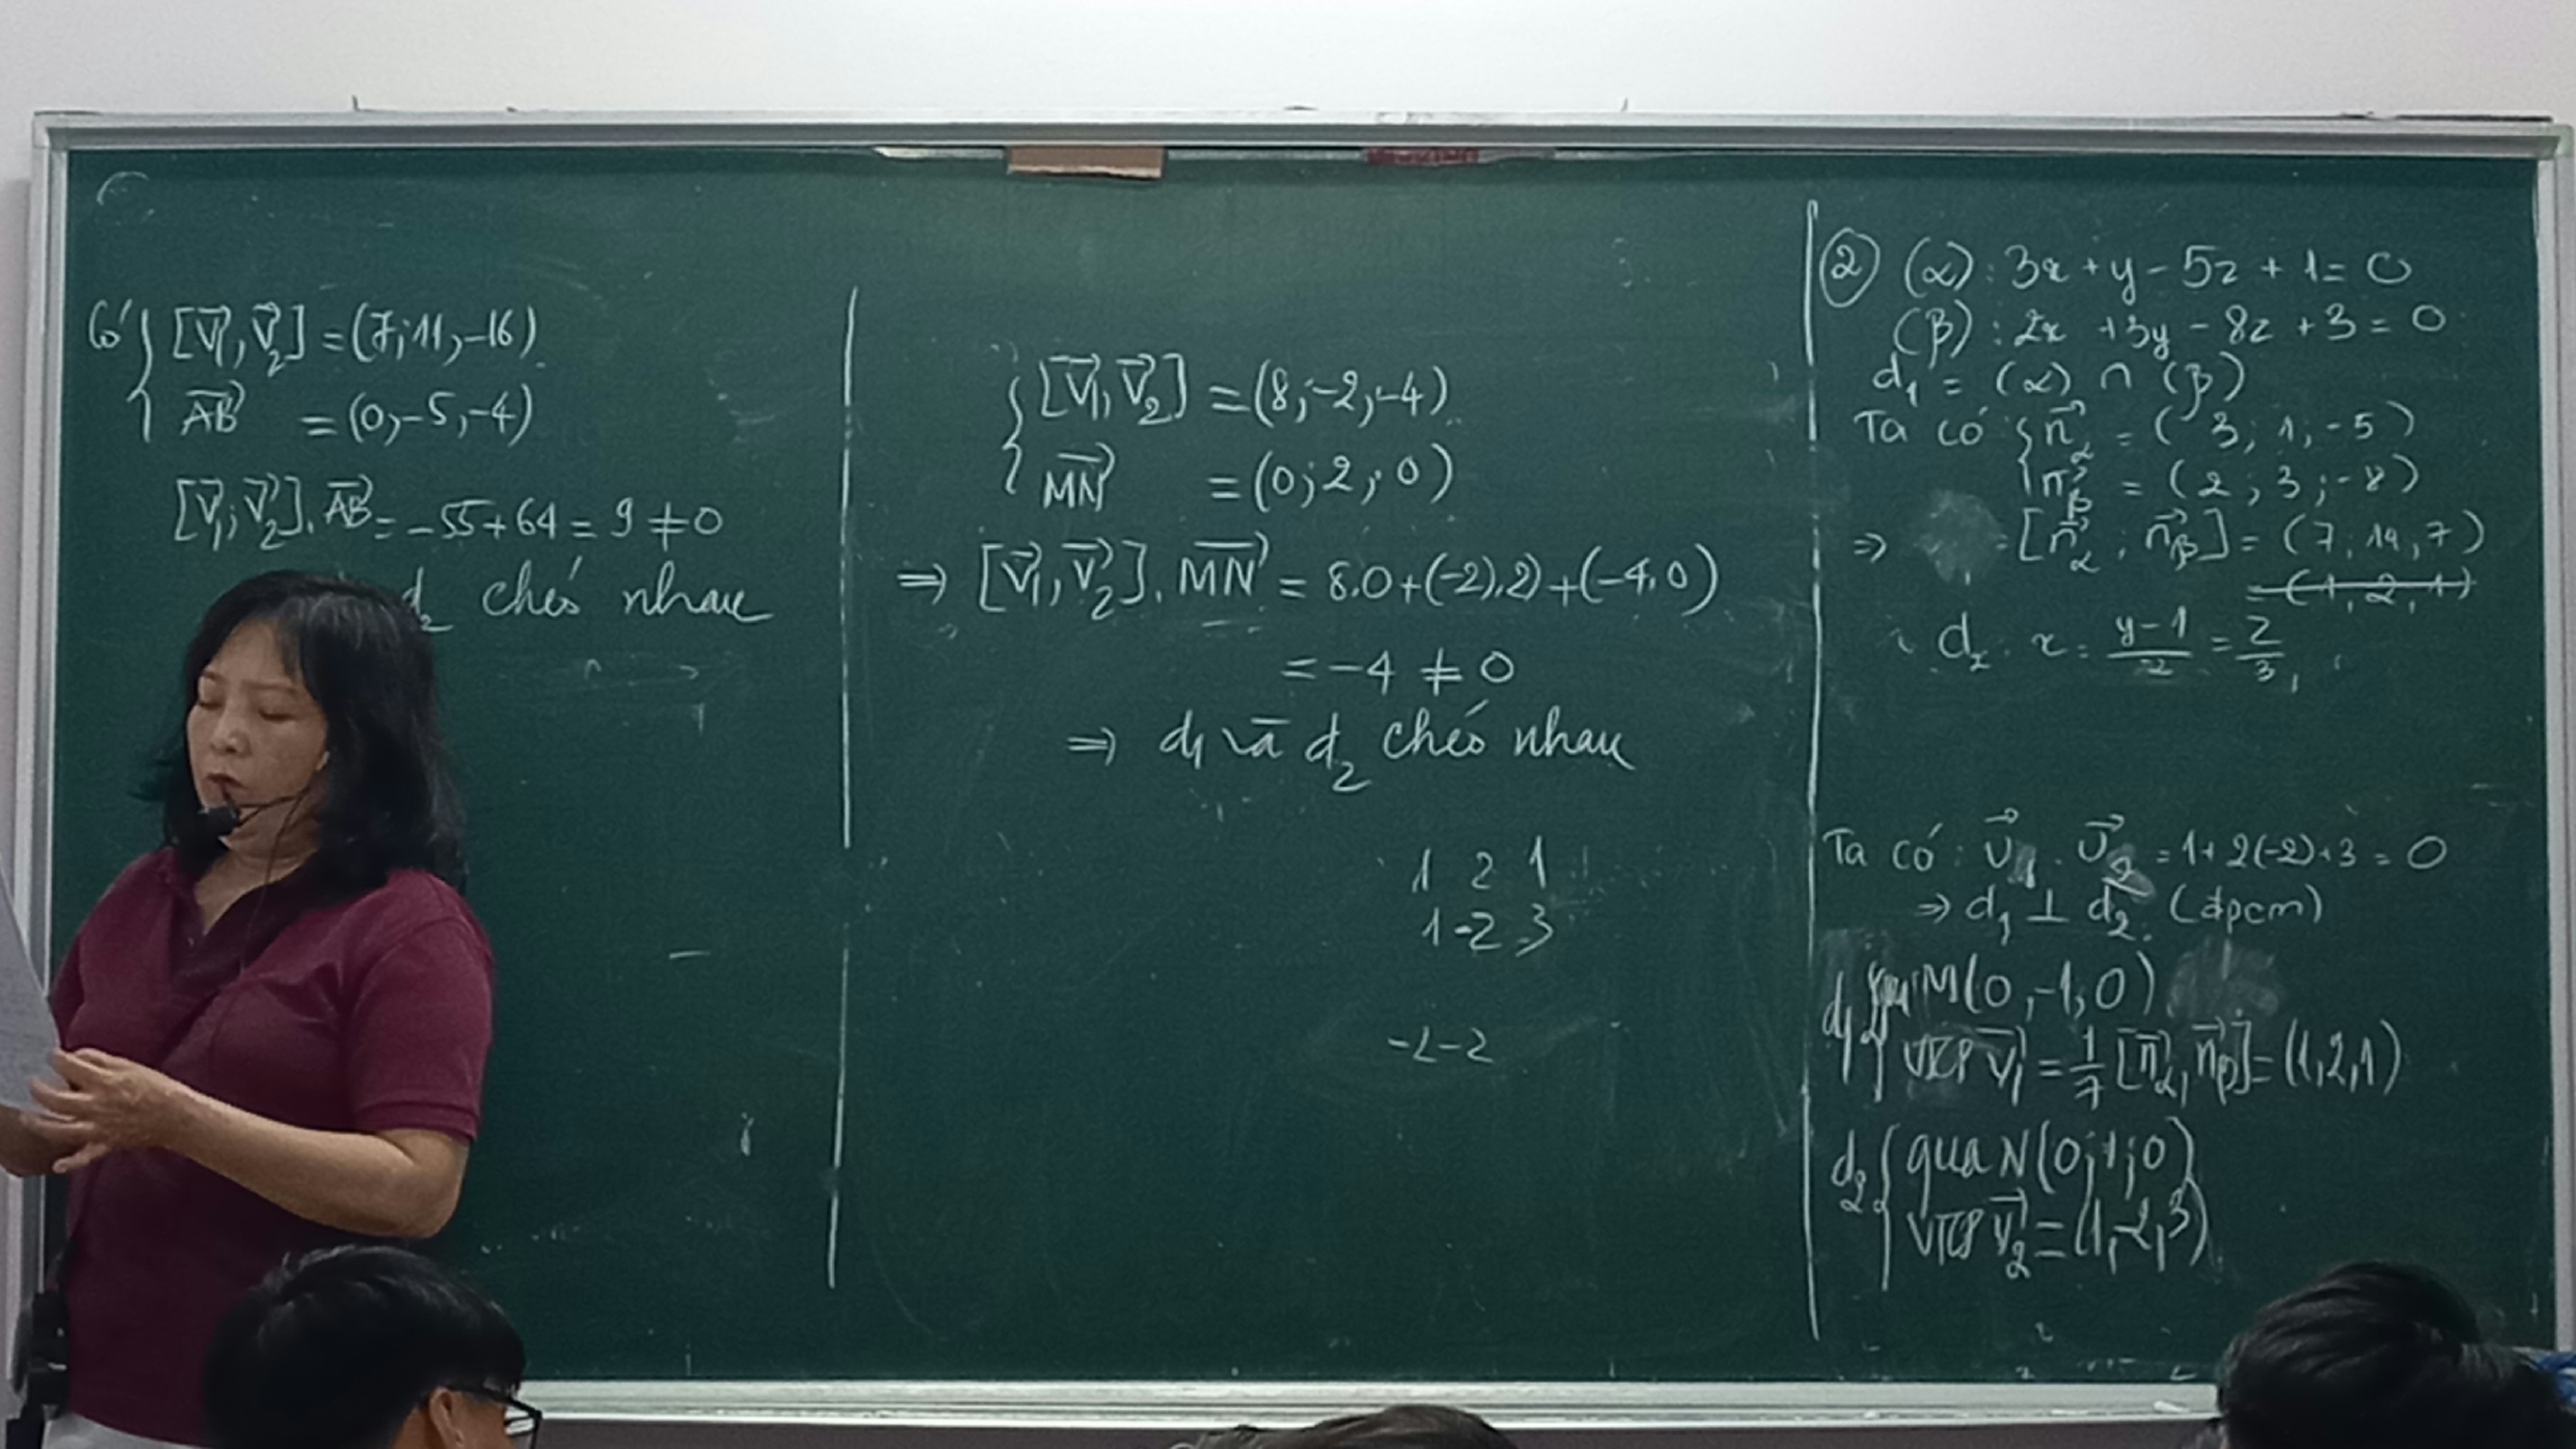 Có { [v⃗1, v⃗2] = (7; 11, -16)
AB⃗ = (0, -5, -4)
[v⃗1; v⃗2]. AB⃗ = -55 + 64 = 9 ≠ 0
d2 chéo nhau
{ [v⃗1, v⃗2] = (8; -2, -4)
MN⃗ = (0; 2; 0)
⇒ [v⃗1, v⃗2]. MN⃗ = 8.0 + (-2).2) + (-4.0)
= -4 ≠ 0
⇒ d1 và d2 chéo nhau
1 2 1
1 -2 3
-2 -2
② (α): 3x + y - 5z + 1 = 0
(β): 2x + 3y - 8z + 3 = 0
d1 = (α) ∩ (β)
Ta có { n⃗α = (3; 1; -5)
n⃗β = (2; 3; -8)
⇒ = [n⃗α; n⃗β] = (7; 14, 7)
= (1, 2, 1)
d2. x = (y-1)/-2 = z/3
Ta có: v⃗1 . v⃗2 = 1 + 2(-2) + 3 = 0
⇒ d1 ⊥ d2. (đpcm)
d1 { qua M(0, -1, 0)
VTCP v⃗1 = 1/7 [n⃗α, n⃗β] = (1, 2, 1)
d2 { qua N(0; 1; 0)
VTCP v⃗2 = (1, -2, 3)